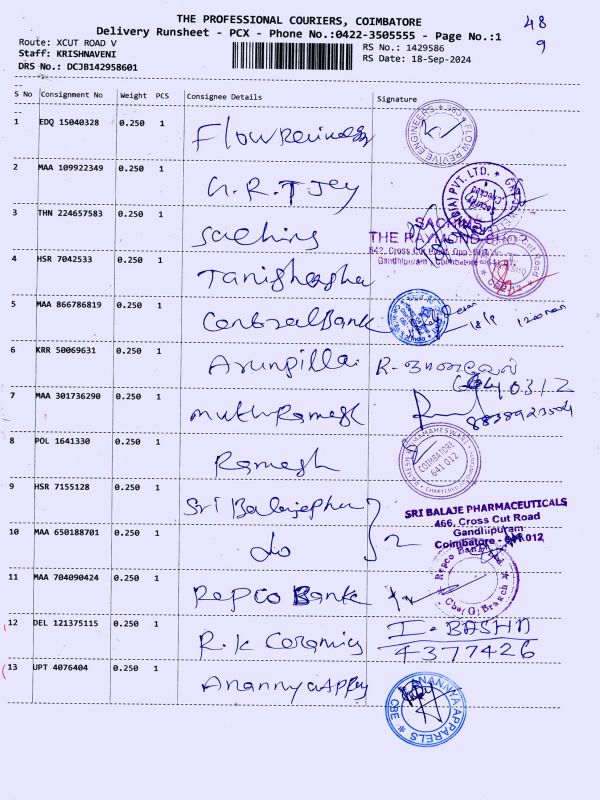 THE PROFESSIONAL COURIERS, COIMBATORE
Delivery Runsheet - PCX - Phone No.:0422-3505555 - Page No.:1
48
9
Route: XCUT ROAD V
Staff: KRISHNAVENI
DRS No.: DCJB142958601
RS No.: 1429586
RS Date: 18-Sep-2024
S No Consignment No Weight PCS Consignee Details Signature
1 EDQ 15040328 0.250 1
FLOW REVIVE ENGINEERS
2 MAA 109922349 0.250 1 G.R.T Jey
3 THN 224657583 0.250 1 Sachins
SACHINS
THE RAYMOND SHOP
642, Cross Cut Road, Opp.
Gandhipuram, Coimbatore - 641 012
4 HSR 7042533 0.250 1
5 MAA 866786819 0.250 1 Central Bank
18/9
6 KRR 50069631 0.250 1 Arunpillai R-
7 MAA 301736290 0.250 1 muthRamesh
8 POL 1641330 0.250 1 Ramesh
COIMBATORE
641 012
9 HSR 7155128 0.250 1 Sri Balajephar
SRI BALAJE PHARMACEUTICALS
466, Cross Cut Road
Gandhipuram
Coimbatore - 641 012
10 MAA 650188701 0.250 1 do 2
11 MAA 704090424 0.250 1 Repco Bank
Repco Bank Ltd
Cbe (G) Branch
12 DEL 121375115 0.250 1 R.K Ceramics I. BASHA
4377426
13 UPT 4076404 0.250 1
ANANNYA APPARELS
CBE